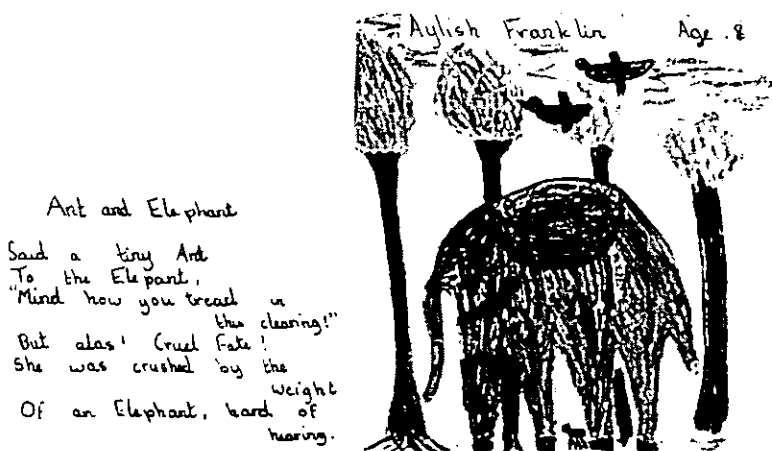 Aylish Franklin Age . 8
Ant and Elephant
Said a tiny Ant
To the Elepant,
"Mind how you tread in
this clearing!"
But alas! Cruel Fate!
She was crushed by the
weight
Of an Elephant, hard of
hearing.